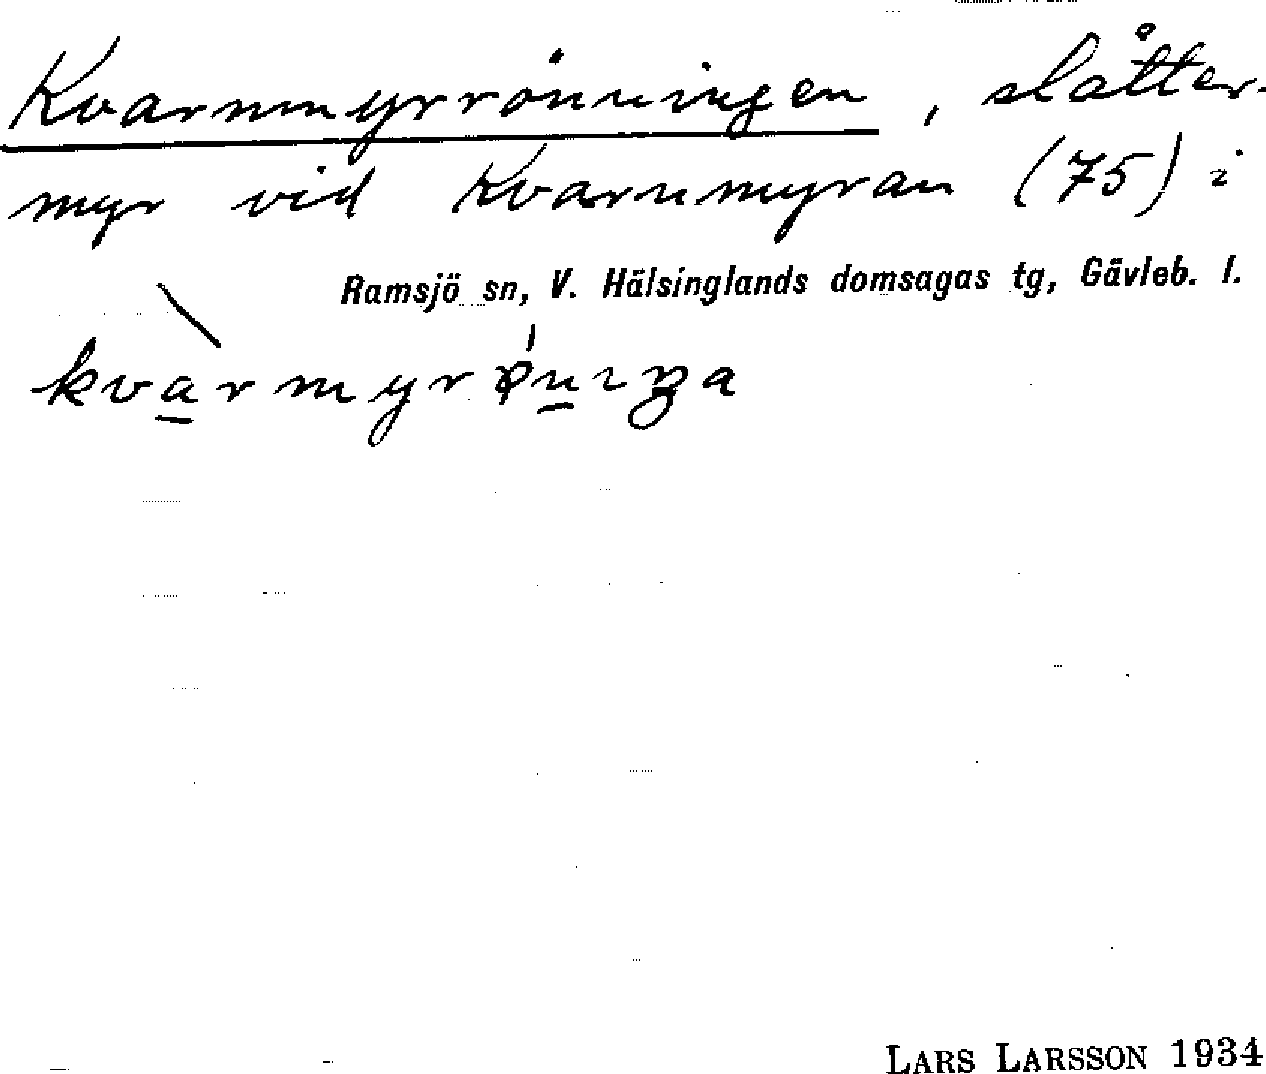 Kvarnmyrrönningen, slåtter-
myr vid Kvarnmyran (75) i
Ramsjö sn, V. Hälsinglands domsagas tg, Gävleb. l.
LARS LARSSON 1934